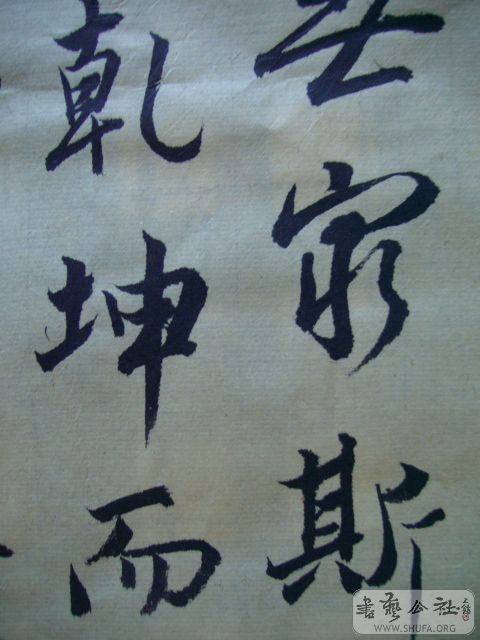 斯
乾坤而
書藝公社
WWW.SHUFA.ORG